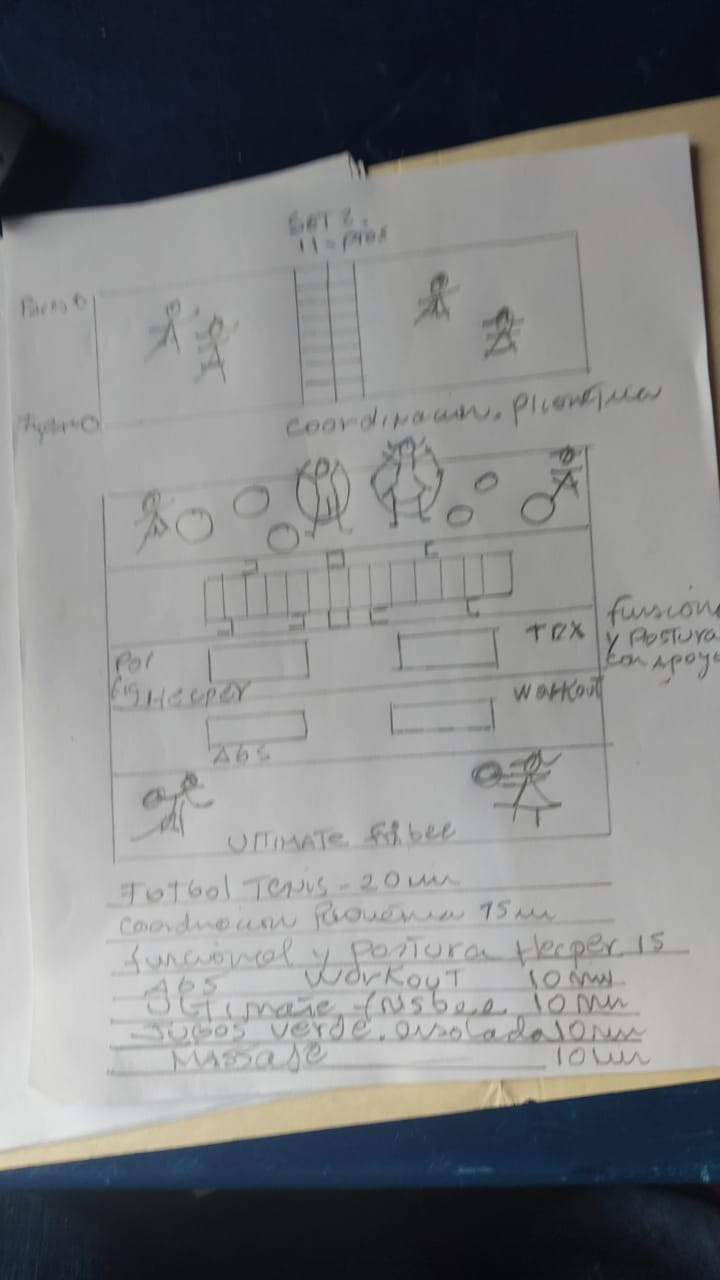 SET 2.
11 = pies
coordinacion. pliometrica
TRX
funcion
y postura
con apoyo
por
Heeper
workout
Abs
Ultimate frisbee
Futbol Tenis - 20 min
coordinacion 15 min
funcional y postura Heeper 15
Abs workout 10 min
Ultimate frisbee 10 min
Jugos verde. ensalada 10 min
Massage 10 min